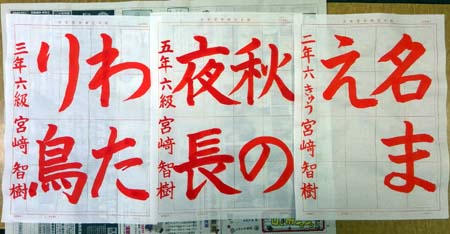 名ま
え
二年六きゅう 宮﨑智樹
秋の
夜長
五年六級 宮﨑智樹
わた
り鳥
三年六級 宮﨑智樹